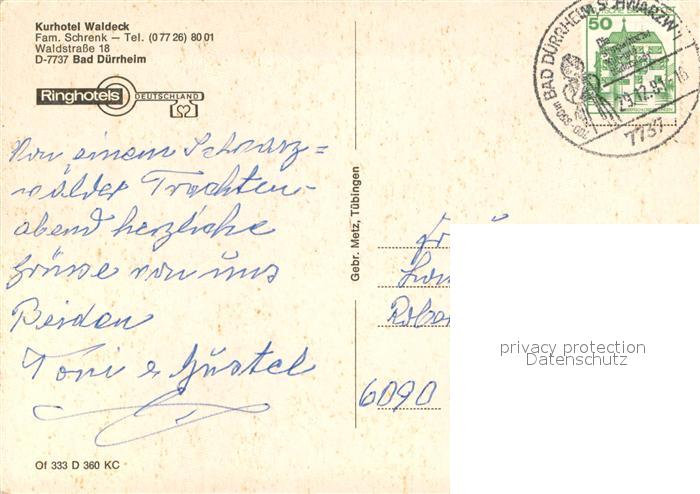 Kurhotel Waldeck
Fam. Schrenk — Tel. (0 77 26) 80 01
Waldstraße 18
D-7737 Bad Dürrheim
Ringhotels DEUTSCHLAND
Von einem Schwarz=
wälder Trachten-
abend herzliche
Grüsse von uns
Beiden
Toni & Gustel
Of 333 D 360 KC
Gebr. Metz, Tübingen
50
BAD DÜRRHEIM, SCHWARZW
7737
6090
privacy protection
Datenschutz